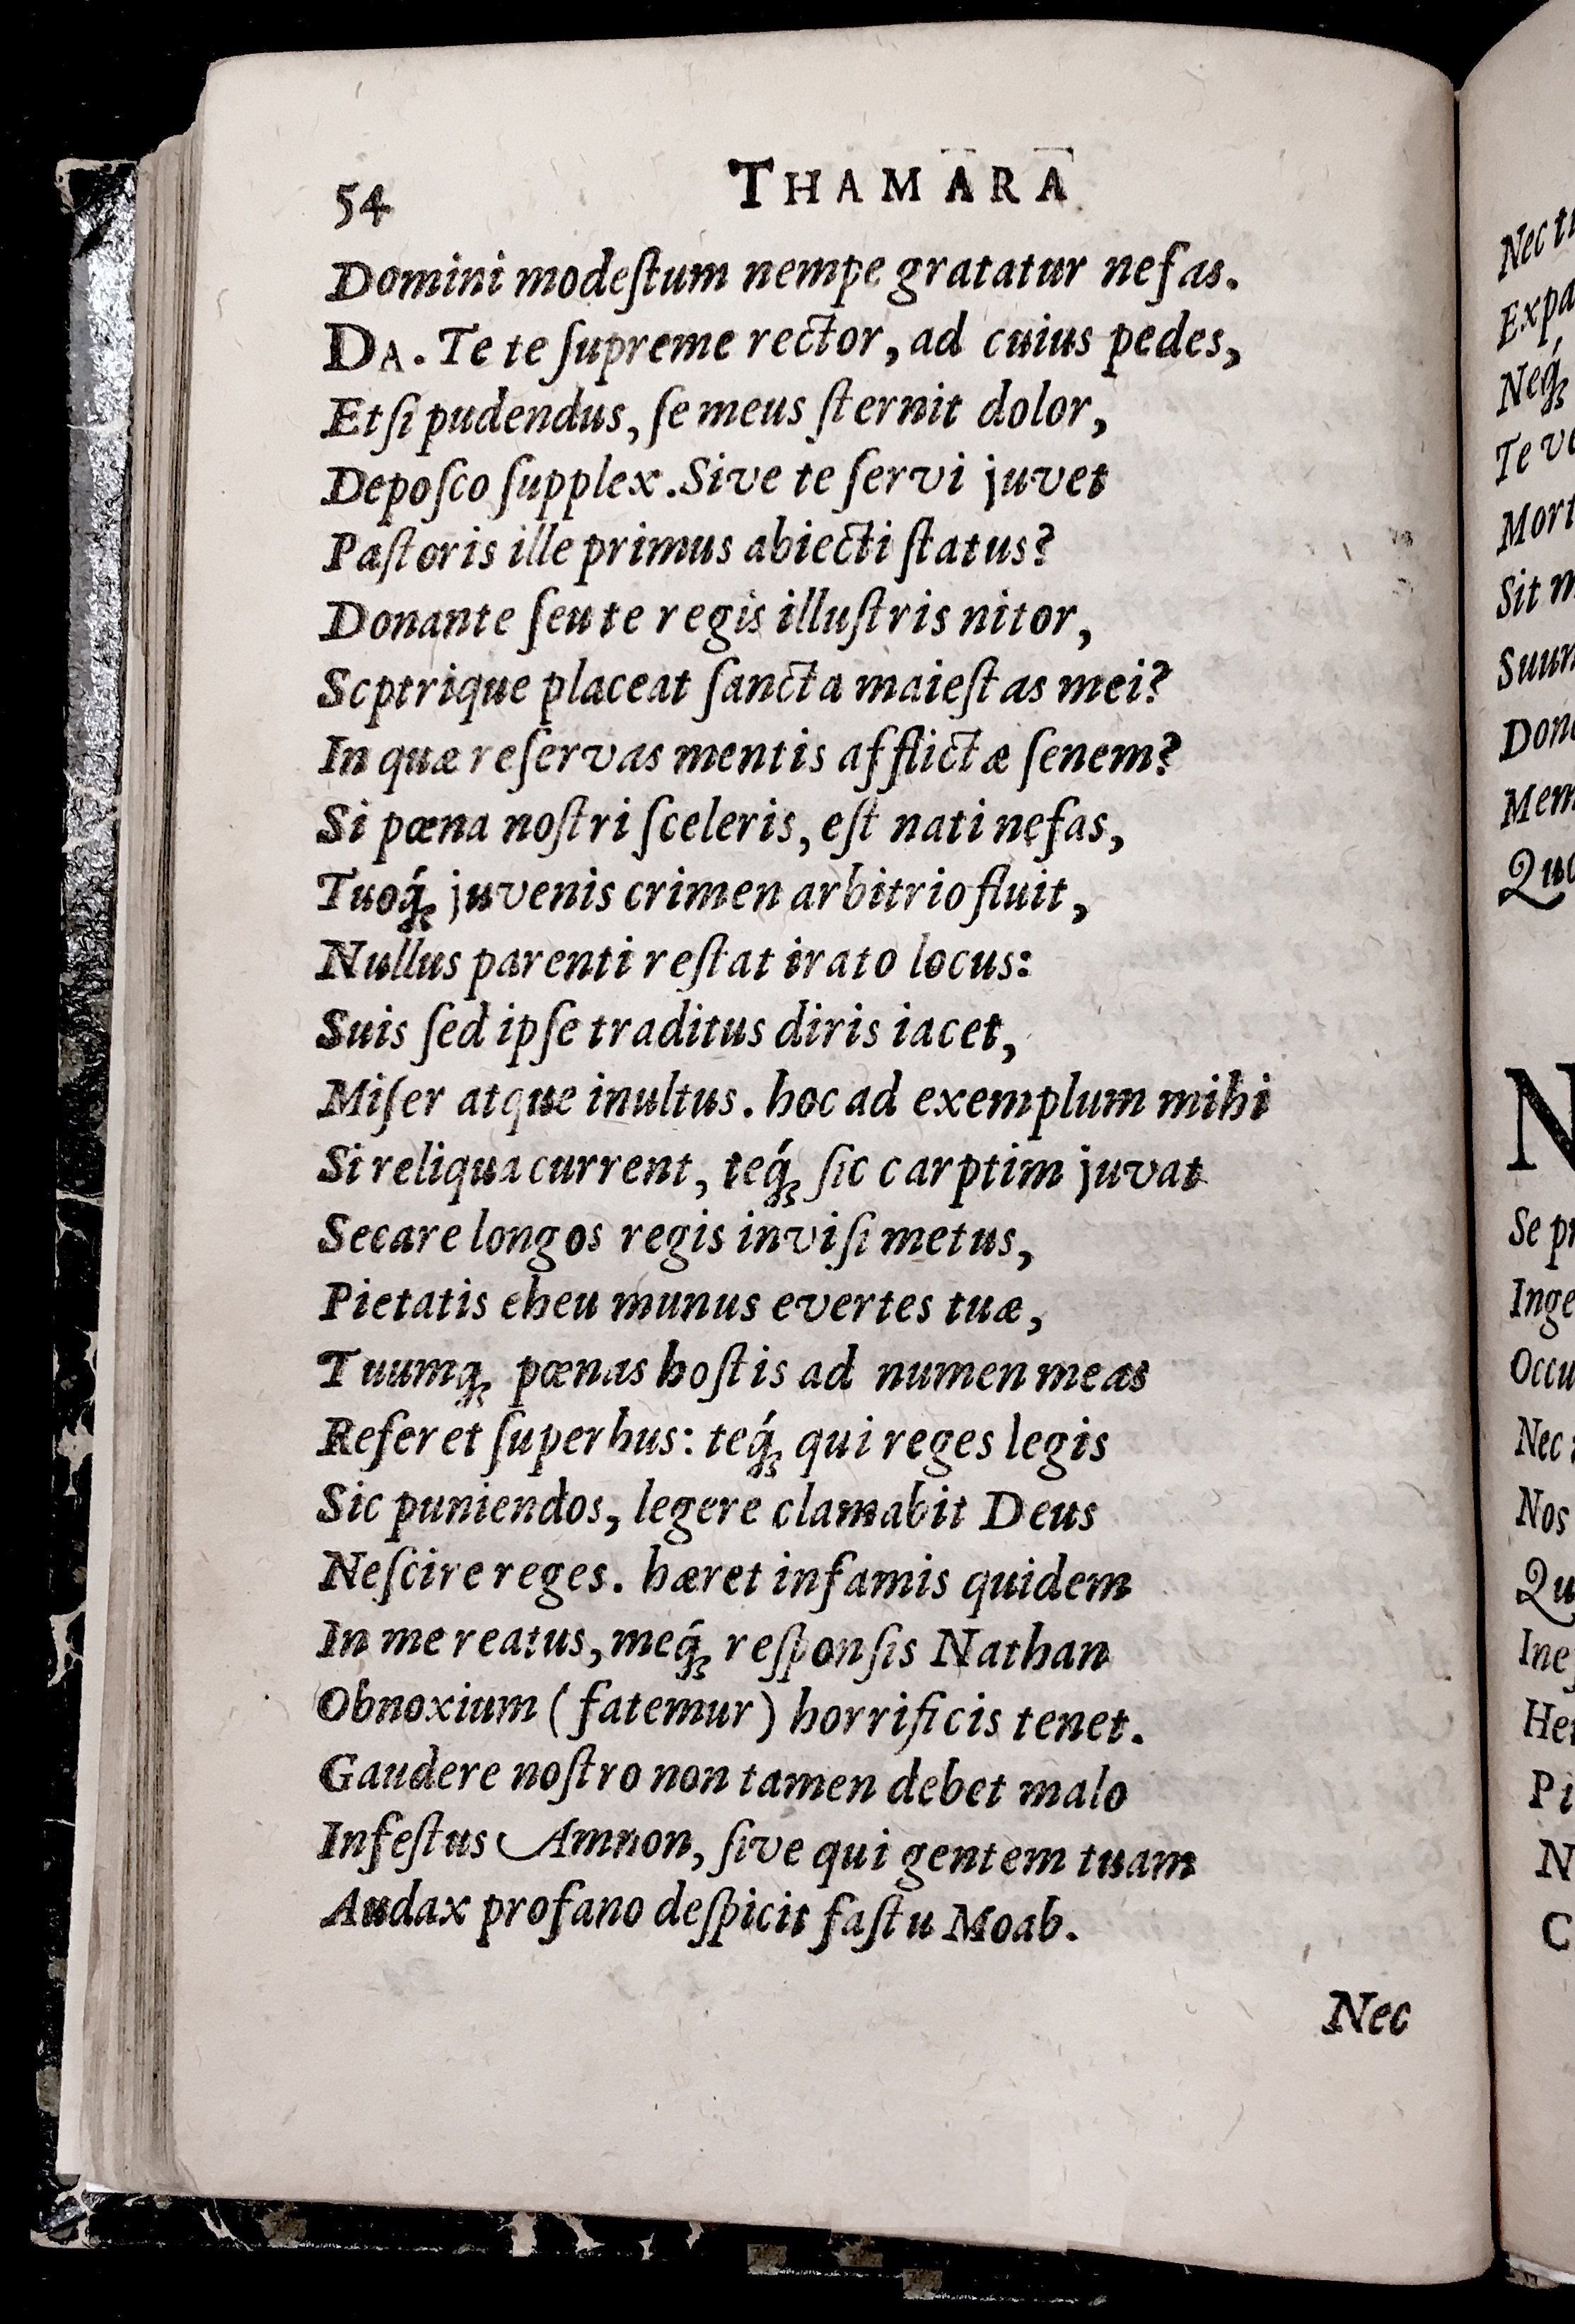 54 THAMARA
Domini modeſtum nempe gratatur nefas.
DA. Te te ſupreme rector, ad cuius pedes,
Etſi pudendus, ſe meus ſternit dolor,
Depoſco ſupplex. Sive te ſervi juvet
Paſtoris ille primus abiecti ſtatus?
Donante ſeu te regis illuſtris nitor,
Scptrique placeat ſancta maieſtas mei?
In quæ reſervas mentis afflictæ ſenem?
Si pœna noſtri ſceleris, eſt nati nefas,
Tuoq́ꝫ juvenis crimen arbitrio fluit,
Nullus parenti reſtat irato locus:
Suis ſed ipſe traditus diris iacet,
Miſer atque inultus. hoc ad exemplum mihi
Si reliqua current, teq́ꝫ ſic carptim juvat
Secare longos regis inviſi metus,
Pietatis eheu munus evertes tuæ,
Tuumqꝫ pœnas hoſtis ad numen meas
Referet ſuperbus: teq́ꝫ qui reges legis
Sic puniendos, legere clamabit Deus
Neſcire reges. hæret infamis quidem
In me reatus, meq́ꝫ reſponſis Nathan
Obnoxium (fatemur) horrificis tenet.
Gaudere noſtro non tamen debet malo
Infeſtus Amnon, ſive qui gentem tuam
Audax profano deſpicit faſtu Moab.
Nec
Nec
Expa
Neq́ꝫ
Te
Mort
Sit
Suum
Done
Mem
Quo
N
Se
Inge
Occu
Nec
Nos
Qu
Ine
Hei
Pi
N
C